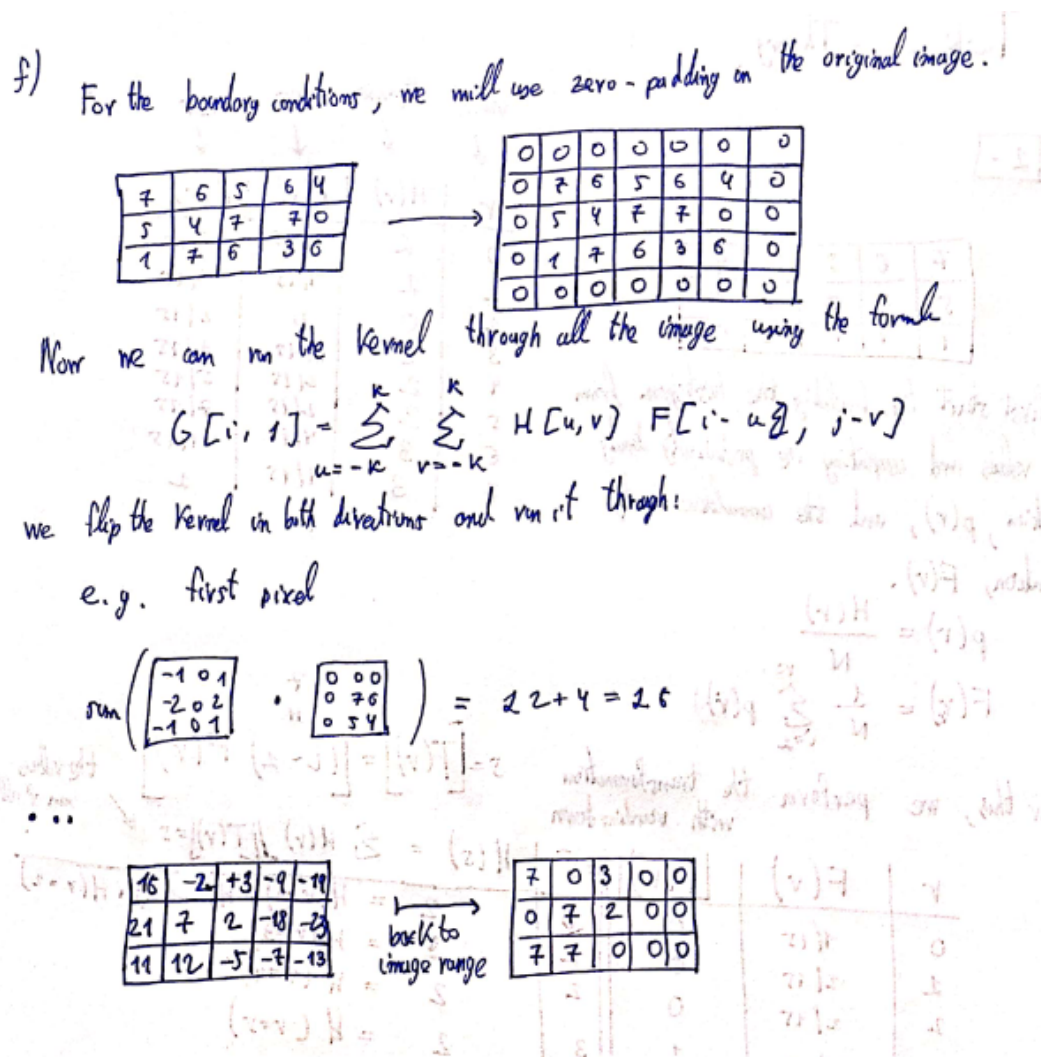 f) For the boundary conditions, we will use zero-padding on the original image.
7 6 5 6 4
5 4 7 7 0
1 7 6 3 6
0 0 0 0 0 0 0
0 7 6 5 6 4 0
0 5 4 7 7 0 0
0 1 7 6 3 6 0
0 0 0 0 0 0 0
Now we can run the Kernel through all the image using the formula
G[i, 1] = Σ Σ H[u,v) F[i-u], j-v]
k k
u=-k v=-k
we flip the Kernel in both directions and run it through:
e.g. first pixel
sum
-1 0 1
-2 0 2
-1 0 1
·
0 0 0
0 7 6
0 5 4
= 12+4 = 16
...
16 -2 +3 -9 -19
21 7 2 -18 -23
11 12 -5 -7 -13
back to
image range
7 0 3 0 0
0 7 2 0 0
7 7 0 0 0